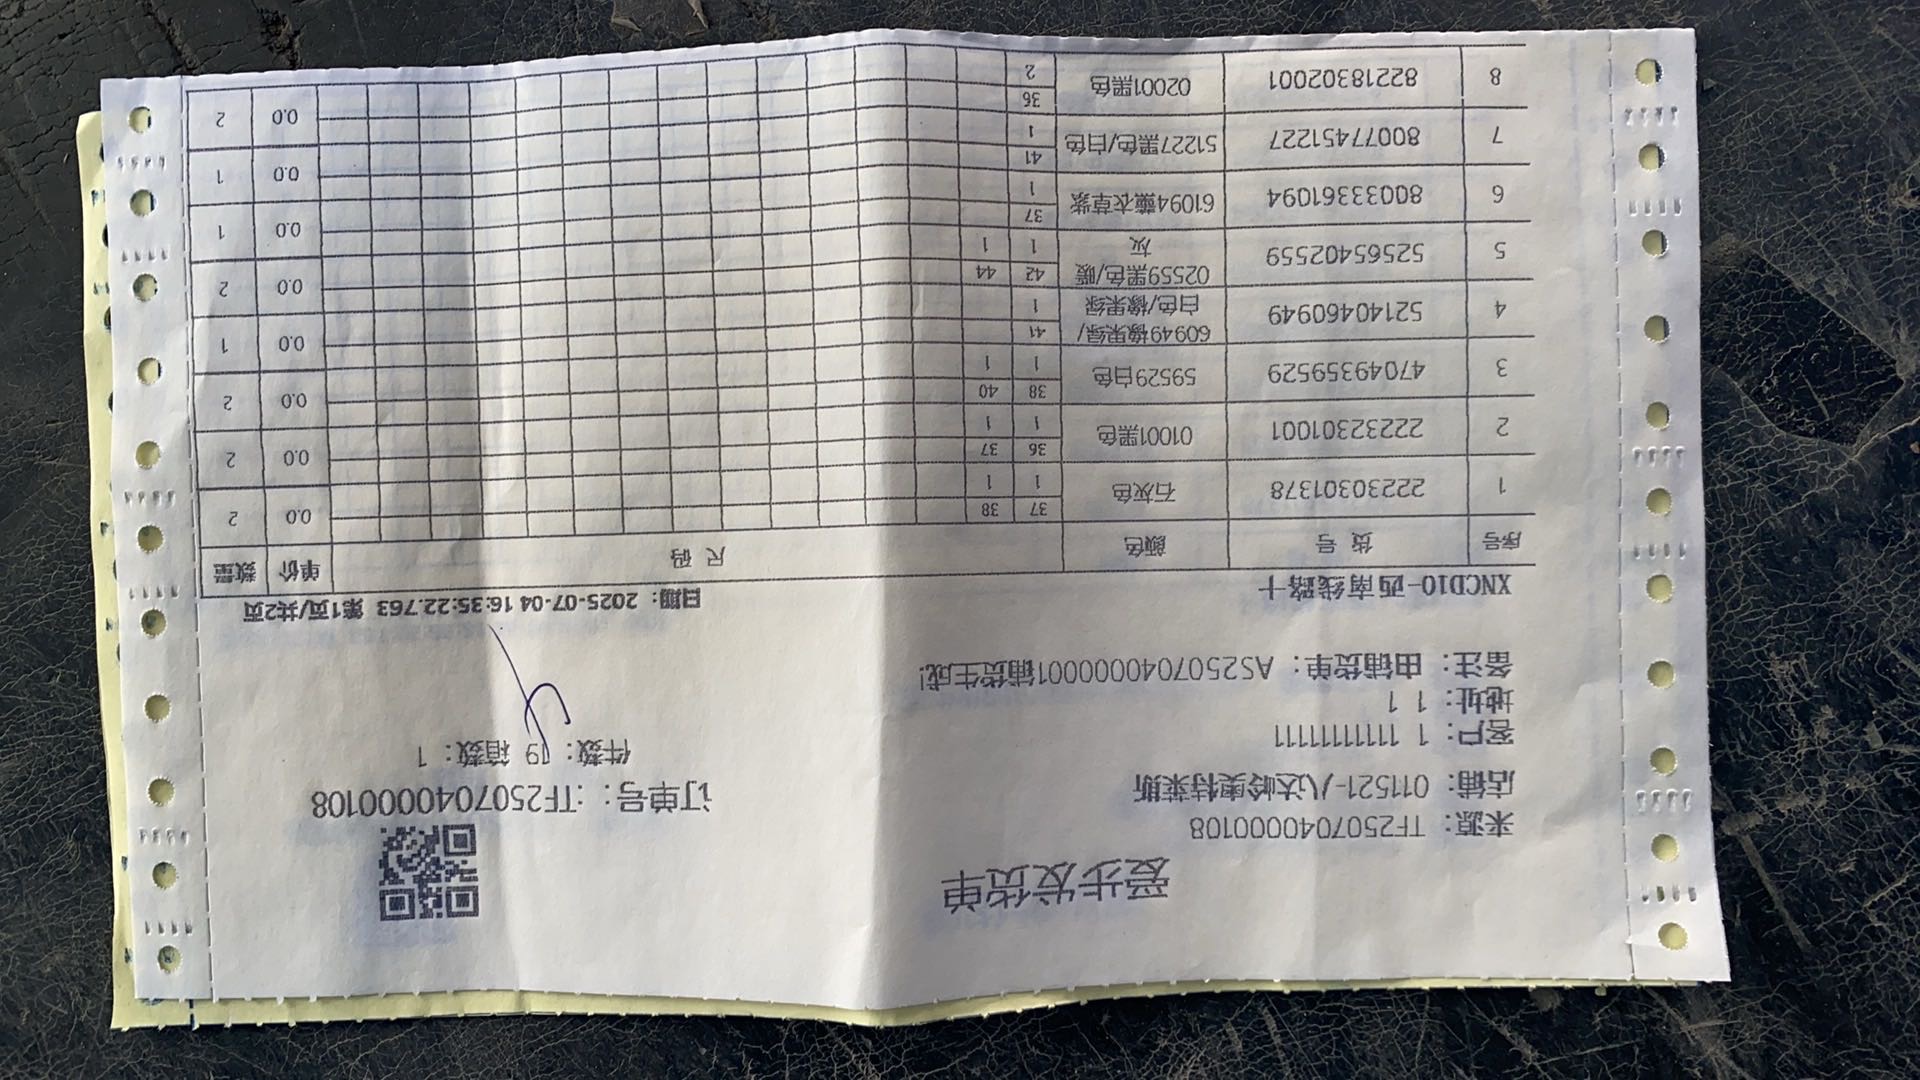 爱步发货单
来源: TF2507040000108
店铺: 011521-八达岭奥特莱斯
订单号: :TF2507040000108
客户: 1 11111111111
件数: 19 箱数: 1
地址: 1 1
备注: 由铺货单: AS2507040000001铺货生成!
XNCD10-西南线路十 日期: 2025-07-04 16:35:22.763 第1页/共2页
序号 货 号 颜色 尺 码 单价 数量
1 22230301378 石灰色 37 38 0.0 2
1 1
2 22232301001 01001黑色 36 37 0.0 2
1 1
3 47049359529 59529白色 38 40 0.0 2
1 1
4 52140460949 60949橡果绿/ 41 0.0 1
白色/橡果绿 1
5 52565402559 02559黑色/暖 42 44 0.0 2
灰 1 1
6 80033361094 61094薰衣草紫 37 0.0 1
1
7 80077451227 51227黑色/白色 41 0.0 1
1
8 82218302001 02001黑色 36 0.0 2
2